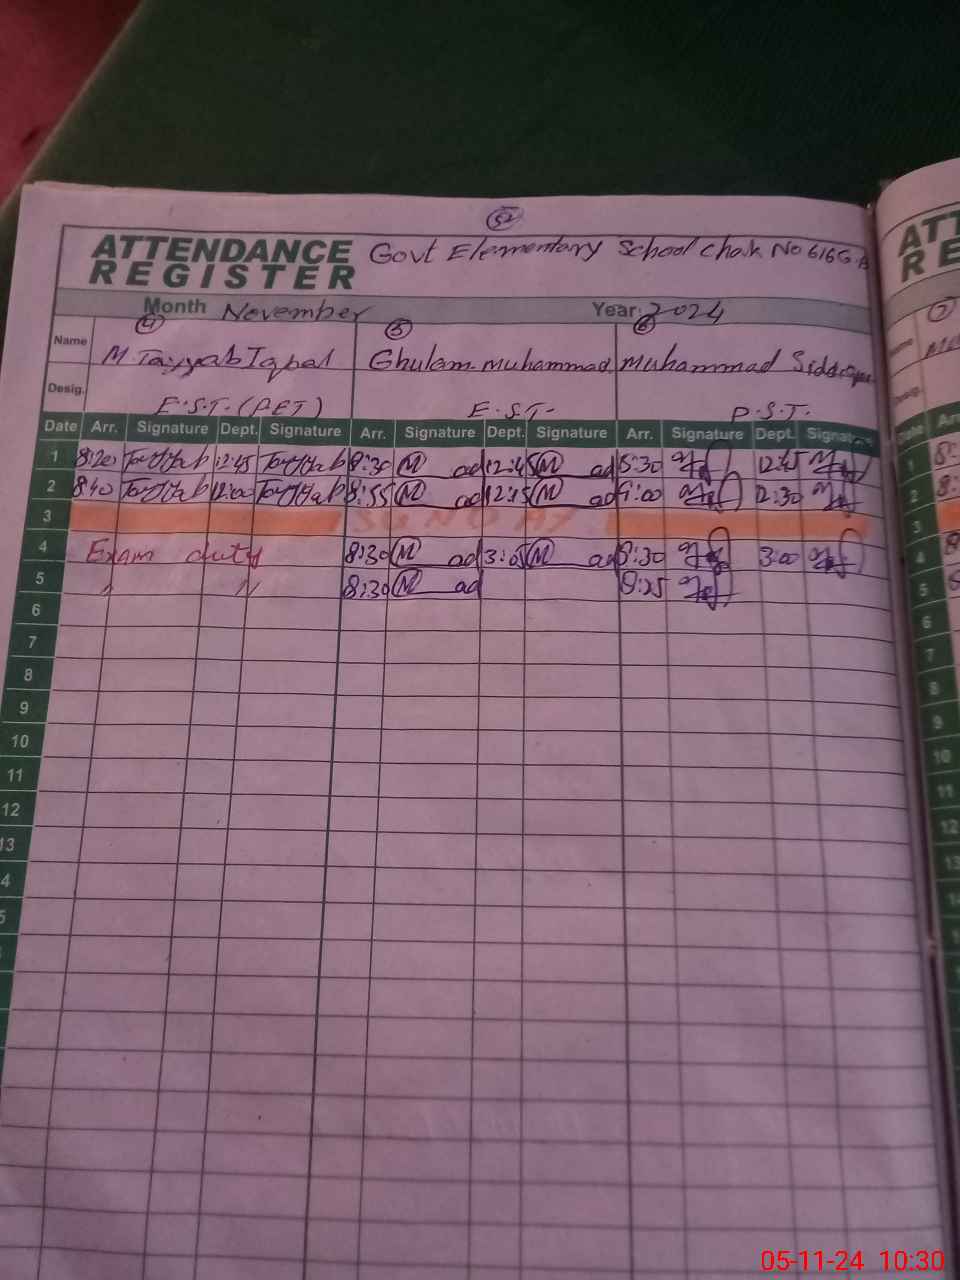 52
ATTENDANCE REGISTER Govt Elementary School Chak No 616G.B
Month November Year 2024
4 5 6
Name M Tayyab Iqbal Ghulam Muhammad Muhammad Siddique
Desig. E.S.T. (PET) E.S.T. P.S.T.
Date Arr. Signature Dept. Signature Arr. Signature Dept. Signature Arr. Signature Dept. Signature
1 8:20 Tayyab 12:45 Tayyab 8:30 M ad 12:45 M ad 8:30 12:45
2 8:40 Tayyab 12:00 Tayyab 8:55 M ad 12:15 M ad 9:00 12:30
3 SUNDAY
4 Exam duty 8:30 M ad 3:05 M ad 8:30 3:00
5 〃 〃 8:30 M ad 8:25
6
7
8
9
10
11
12
13
4
5
ATT
RE
7
1
2
3
4
5
6
7
8
9
10
11
12
13
05-11-24 10:30